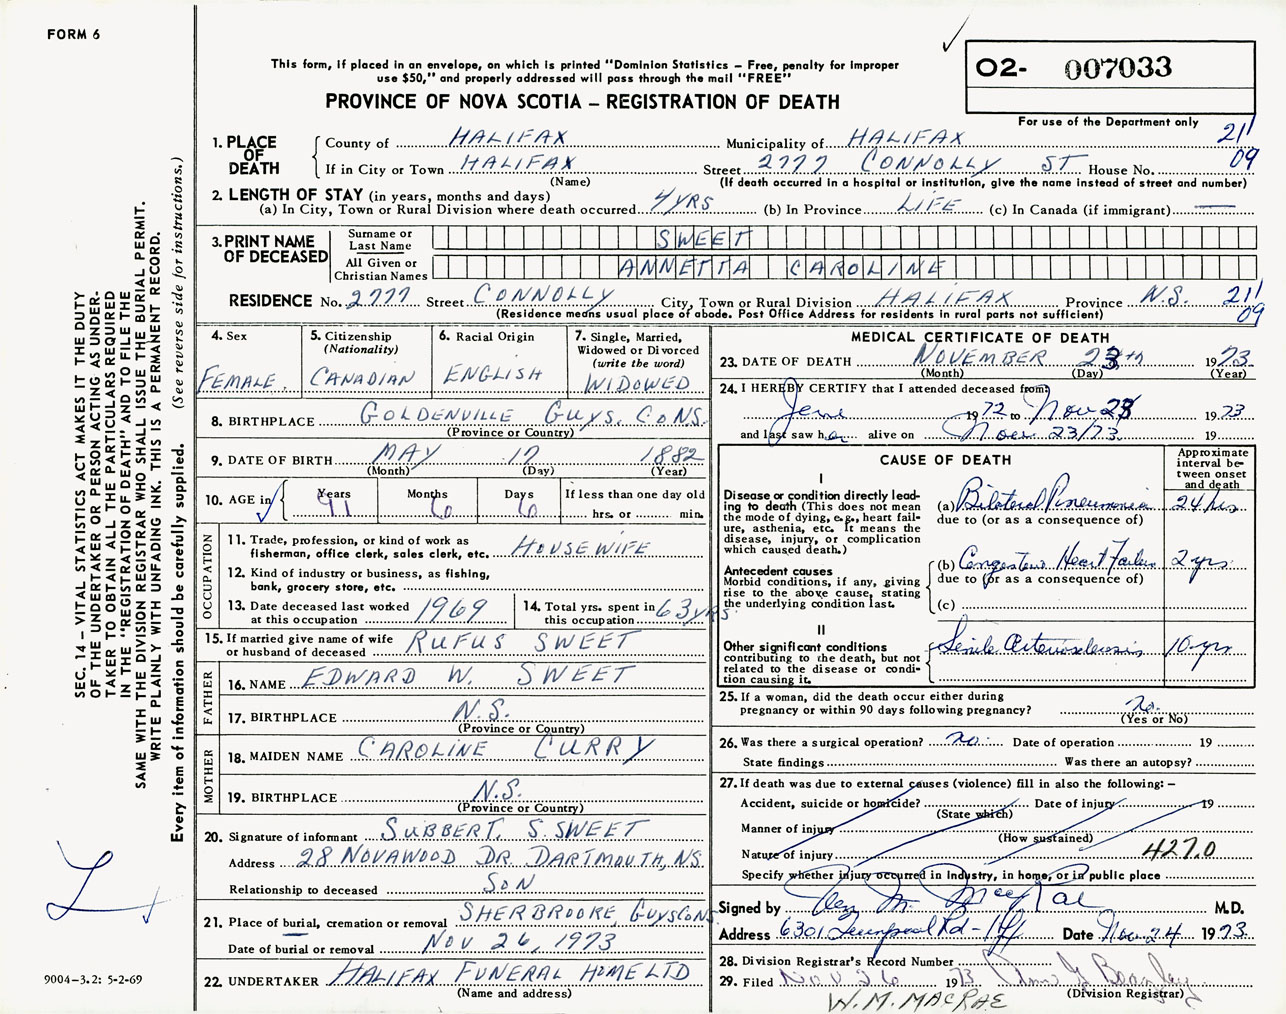 FORM 6
This form, if placed in an envelope, on which is printed "Dominion Statistics – Free, penalty for improper
use $50," and properly addressed will pass through the mail "FREE"
PROVINCE OF NOVA SCOTIA – REGISTRATION OF DEATH
O2- 007033
For use of the Department only
211
09
1. PLACE OF DEATH
County of HALIFAX Municipality of HALIFAX
If in City or Town HALIFAX Street 2777 CONNOLLY ST House No.
(Name) (If death occurred in a hospital or institution, give the name instead of street and number)
2. LENGTH OF STAY (in years, months and days)
(a) In City, Town or Rural Division where death occurred 4 YRS (b) In Province LIFE (c) In Canada (if immigrant) —
3. PRINT NAME OF DECEASED
Surname or Last Name SWEET
All Given or Christian Names ANNETTA CAROLINE
RESIDENCE No. 2777 Street CONNOLLY City, Town or Rural Division HALIFAX Province N.S. 211
09
(Residence means usual place of abode. Post Office Address for residents in rural parts not sufficient)
4. Sex
FEMALE
5. Citizenship
(Nationality)
CANADIAN
6. Racial Origin
ENGLISH
7. Single, Married,
Widowed or Divorced
(write the word)
WIDOWED
8. BIRTHPLACE GOLDENVILLE GUYS. CO NS.
(Province or Country)
9. DATE OF BIRTH MAY 17 1882
(Month) (Day) (Year)
10. AGE in Years 91 Months 6 Days 6 If less than one day old
hrs. or min.
OCCUPATION
11. Trade, profession, or kind of work as
fisherman, office clerk, sales clerk, etc. HOUSEWIFE
12. Kind of industry or business, as fishing,
bank, grocery store, etc.
13. Date deceased last worked
at this occupation 1969
14. Total yrs. spent in
this occupation 63 yrs.
15. If married give name of wife
or husband of deceased RUFUS SWEET
FATHER
16. NAME EDWARD W. SWEET
17. BIRTHPLACE N.S.
(Province or Country)
MOTHER
18. MAIDEN NAME CAROLINE CURRY
19. BIRTHPLACE N.S.
(Province or Country)
20. Signature of informant SUBBERT S. SWEET
Address 28 NOVAWOOD DR DARTMOUTH, N.S.
Relationship to deceased SON
21. Place of burial, cremation or removal SHERBROOKE, GUYS CO NS.
Date of burial or removal NOV 26, 1973
22. UNDERTAKER HALIFAX FUNERAL HOME LTD
(Name and address)
MEDICAL CERTIFICATE OF DEATH
23. DATE OF DEATH NOVEMBER 23th 1973
(Month) (Day) (Year)
24. I HEREBY CERTIFY that I attended deceased from:
June 1972 to Nov 23 1973
and last saw her alive on Nov. 23/73 19
CAUSE OF DEATH
Approximate
interval be-
tween onset
and death
I
Disease or condition directly lead-
ing to death (This does not mean
the mode of dying, e.g., heart fail-
ure, asthenia, etc. It means the
disease, injury, or complication
which caused death.)
(a) Bilateral Pneumonia 24 hrs
due to (or as a consequence of)
Antecedent causes
Morbid conditions, if any, giving
rise to the above cause, stating
the underlying condition last.
(b) Congestive Heart Failure 2 yrs.
due to (or as a consequence of)
(c)
II
Other significant conditions
contributing to the death, but not
related to the disease or condi-
tion causing it.
Senile Arteriosclerosis 10 yrs
25. If a woman, did the death occur either during
pregnancy or within 90 days following pregnancy? no.
(Yes or No)
26. Was there a surgical operation? no. Date of operation 19
State findings Was there an autopsy?
27. If death was due to external causes (violence) fill in also the following: –
Accident, suicide or homicide? Date of injury 19
(State which)
Manner of injury
(How sustained)
Nature of injury 427.0
Specify whether injury occurred in Industry, in home, or in public place
Signed by M. MacRae M.D.
Address 6301 Liverpool Rd - Hfx Date Nov. 24 1973
28. Division Registrar's Record Number
29. Filed Nov 26 1973
(Division Registrar)
W. M. MACRAE
SEC. 14 – VITAL STATISTICS ACT MAKES IT THE DUTY
OF THE UNDERTAKER OR PERSON ACTING AS UNDER-
TAKER TO OBTAIN ALL THE PARTICULARS REQUIRED
IN THE "REGISTRATION OF DEATH" AND TO FILE THE
SAME WITH THE DIVISION REGISTRAR WHO SHALL ISSUE THE BURIAL PERMIT.
WRITE PLAINLY WITH UNFADING INK. THIS IS A PERMANENT RECORD.
Every item of information should be carefully supplied. (See reverse side for instructions.)
9004–3.2: 5-2-69